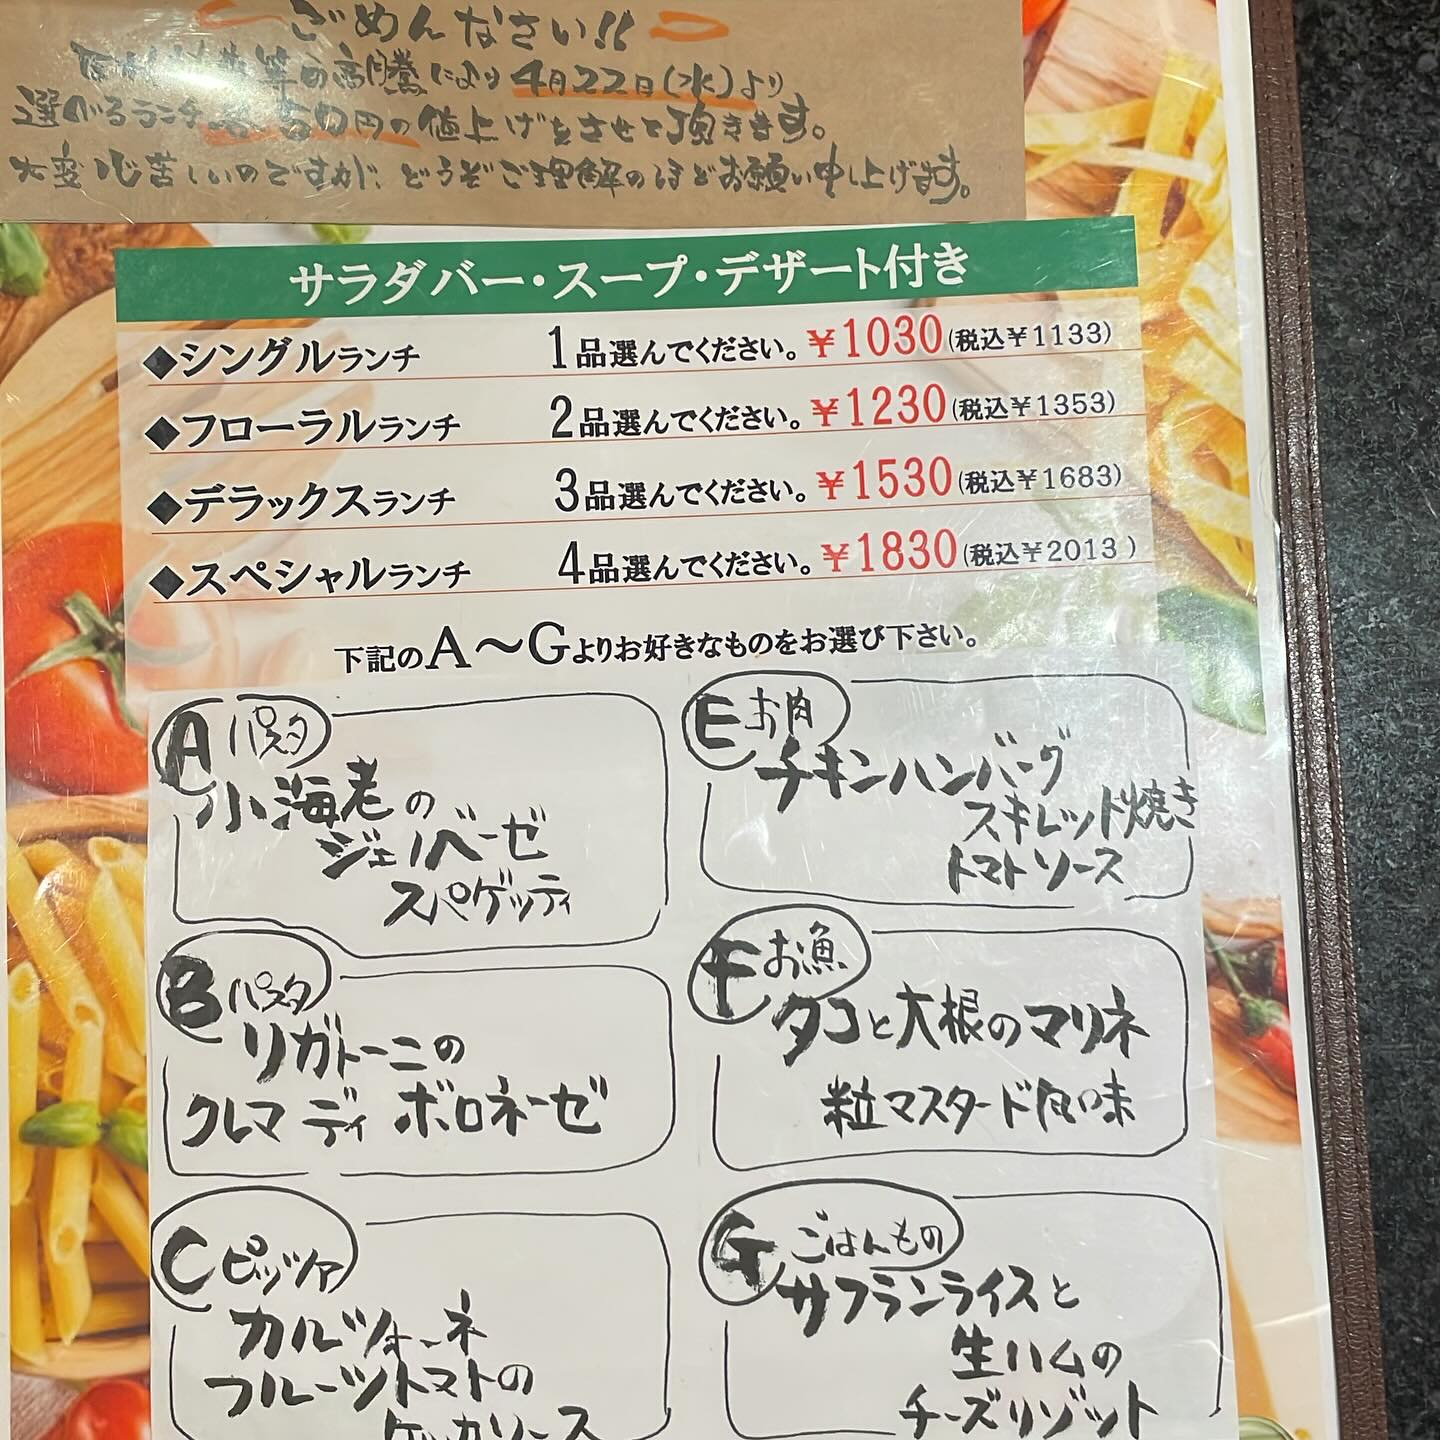 ごめんなさい!!
等の高騰により4月22日(水)より
選べるランチ各50円の値上げをさせて頂きます。
大変心苦しいのですが、どうぞご理解のほどお願い申し上げます。
サラダバー・スープ・デザート付き
◆シングルランチ 1品選んでください。¥1030(税込¥1133)
◆フローラルランチ 2品選んでください。¥1230(税込¥1353)
◆デラックスランチ 3品選んでください。¥1530(税込¥1683)
◆スペシャルランチ 4品選んでください。¥1830(税込¥2013)
下記のA〜Gよりお好きなものをお選び下さい。
A パスタ
小海老の
ジェノベーゼ
スパゲッティ
B パスタ
リガトーニの
クレマ ディ ボロネーゼ
C ピッツァ
カルツォーネ
フルーツトマトの
ケッカソース
E お肉
チキンハンバーグ
スキレット焼き
トマトソース
F お魚
タコと大根のマリネ
粒マスタード風味
G ごはんもの
サフランライスと
生ハムの
チーズリゾット